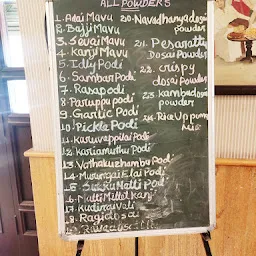 ALL POWDERS
1. Adai Mavu
2. Bajji Mavu
3. Sevai Mavu
4. Kanji Mavu
5. Idly Podi
6. Sambar Podi
7. Rasapodi
8. Paruppu Podi
9. Garlic Podi
10. Pickle Podi
11. Karuveppilai Podi
12. Kuriamuthu Podi
13. Vathakuzhambu Podi
14. Murungai Elai Podi
15. Sukku Malli Podi
16. Malti Millet Kanj
17. Kudiraivali
18. Ragi dosai
20. Navadhanya dosai
powder
21. Pesarattu
Dosai Powder
22. crispy
dosai powder
23. kambu dosai
powder
24. Rice Uppuma
Mix